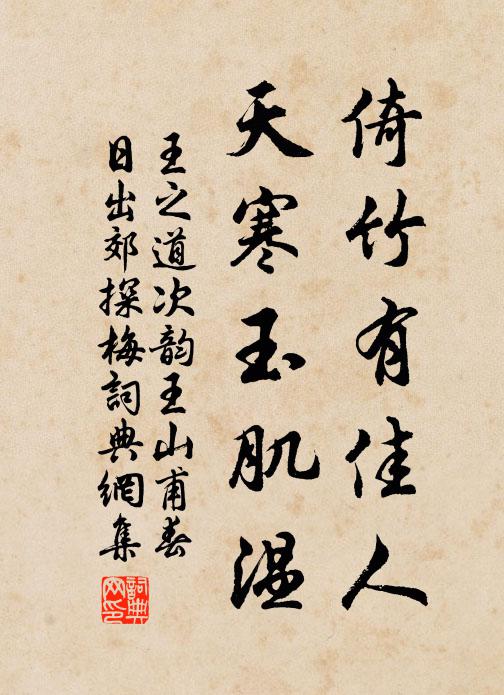 倚竹有佳人
天寒玉肌温
王之道次韵王山甫春
日出郊探梅詞典網集
詞典
网印